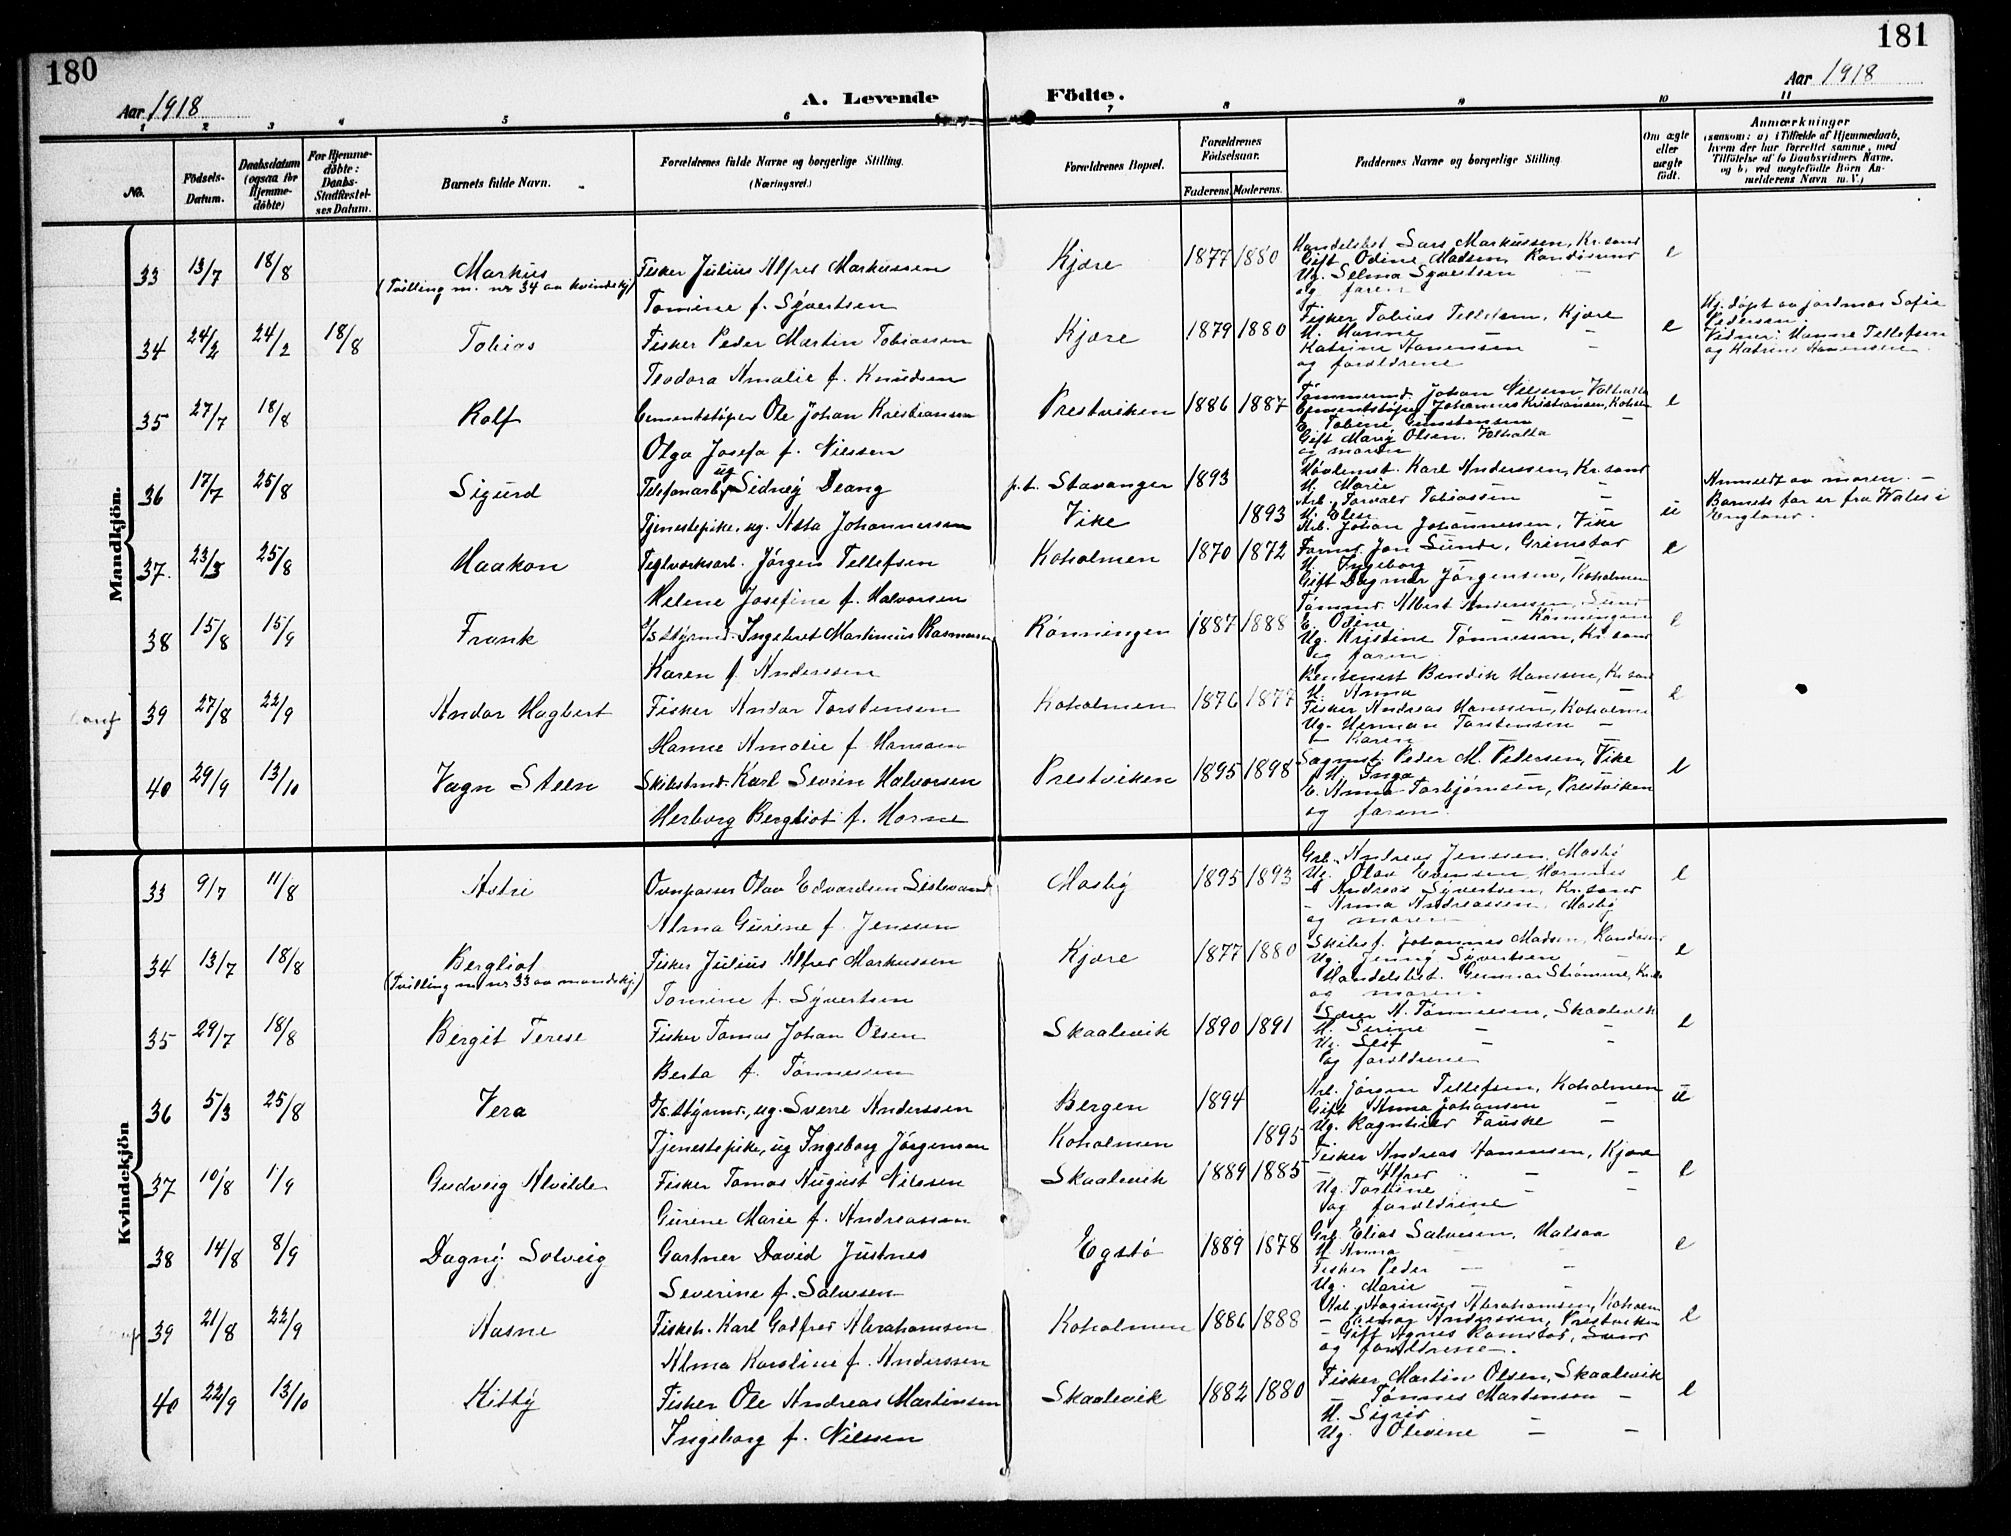 180
181
Aar 1918
A. Levende
Födte.
Aar 1918
1 2 3 4 5 6 7 8 9 10 11
No.
Födsels-
Datum.
Daabsdatum
(ogsaa for
Hjemme-
döbte)
For Hjemme-
döbte:
Daabs-
Stadfæstel-
ses Datum.
Barnets fulde Navn.
Forældrenes fulde Navne og borgerlige Stilling.
(Næringsvei.)
Forældrenes Bopæl.
Forældrenes
Födselsaar.
Faderens. Moderens.
Faddernes Navne og borgerlige Stilling.
Om ægte
eller
uægte
födt.
Anmærkninger
(saasom: a) i Tilfælde af Hjemmedaab,
hvem der har forrettet samme, med
Tilföielse af to Daabsvidners Navne,
og b) ved uægtefödte Börn An-
melderens Navn m. V.)
Mandkjön.
33 13/7 18/8 Markus
(Tvilling m. nr 34 av kvindekj)
Fisker Julius Alfred Markussen
Tomine f. Syvertsen
Kjære 1877 1880
Handelsbet. Lars Markussen, Kr.sand
Gift Odine Madsen, Randesund
Ug. Selma Syvertsen —
og faren
e
34 24/2 24/2 18/8 Tobias
Fisker Peder Martin Tobiassen
Teodora Amalie f. Knudsen
Kjære 1879 1880
Fisker Tobias Tellefsen, Kjære
H. Hanne —
Katrine Aanensen —
og forældrene
e
Hj. døpt av jordmor Sofie
Pedersen.
Vidner: Hanne Tellefsen
og Katrine Aanensen.
35 27/7 18/8 Rolf
Cementstøper Ole Johan Kristiansen
Olga Josefa f. Nilssen
Prestviken 1886 1887
Tømmermd. Johan Nilsen, Valhalla
Cementstøper Johannes Kristiansen,
E. Tobine Gunstensen —
Gift Marie Olsen, Valhalla
og moren
e
36 17/7 25/8 Sigurd
Telefonarb. ug Sidney Deang
Tjenestepike, ug. Asta Johannessen
p.t. Stavanger 1893
Vike 1893
Karl Anderssen, Kr.sand
H. Marie —
Arb. Torvald Tobiassen —
H. Elen —
Arb. Johan Johannessen, Vike
u
Anmeldt av moren. —
Barnets far er fra Wales i
England.
37. 23/3 25/8 Haakon
Teglverksarb. Jørgen Tellefsen
Helene Josefine f. Halvorsen
Koholmen 1870 1872
Jon Sunde, Grimstad
H. Ingeborg —
Gift Dagmar Jørgensen, Koholmen
e
38 15/8 15/9 Frank
D/S Styrmd. Ingebret Martinius Rasmussen
Karen f. Anderssen
Rønningen 1887 1888
Tømmd. Albert Anderssen, Sund
E. Odine — Rønningen
Ug. Kristine Tønnessen, Kr.sand
og faren
e
39 27/8 22/9 Andor Hagbert
Fisker Andor Torstensen
Hanne Amalie f. Hanssen
Koholmen 1876 1877
Bendik Hanssen, Kr.sand
H. Anna —
Fisker Andreas Hanssen, Koholmen
Ug. Herman Torstensen —
— Karen —
e
40 29/9 13/10 Vagn Steen
Skibstmd. Karl Severin Halvorsen
Herborg Bergliot f. Horne
Prestviken 1895 1898
Sagmst. Peder M. Petersen, Vike
H. Inga —
E. Anna Torbjørnsen, Prestviken
og faren.
e
Kvindekjön
33 9/7 11/8 Astri
Ovnpasser Olav Edvardsen Sistevand
Alma Gurine f. Jenssen
Mosby 1895 1893
Grb. Andreas Jenssen, Mosby
Ug. Olav Evensen, Hornnes
E Andreas Syvertsen, Kr.sand
— Anna Andreassen, Mosby
og moren
e
34 13/7 18/8 Bergliot
(Tvilling m. nr 33 av mandskj.)
Fisker Julius Alfred Markussen
Tomine f. Syvertsen
Kjære 1877 1880
Skibsf. Johannes Madsen, Randesund
Ug. Jenny Syvertsen —
Handelsbet. Gunnar Strømme, Kr.s.
og moren.
e
35 29/7 18/8 Bergit Terese
Fisker Tomas Johan Olsen
Berta f. Tønnessen
Skaalevik 1890 1891
Søren A. Tønnessen, Skaalevik
H. Serine — —
Ug. Leif — —
og forældrene
e
36 5/3 25/8 Vera
D/S Styrmd., ug. Sverre Anderssen
Tjenestepike, ug Ingeborg Jørgensen
Bergen 1894
Koholmen 1895
Arb. Jørgen Tellefsen, Koholmen
Gift Anna Johansen —
Ug. Ragnhild Fauske —
u
37 10/8 1/9 Gudveig Alvilde
Fisker Tomas August Nilssen
Gurine Marie f. Andreassen
Skaalevik 1889 1885
Fisker Andreas Aanensen, Kjære
— Alfred — —
Ug. Torbine — —
og forældrene
e
38 14/8 8/9 Dagny Solveig
Gartner David Justnes
Severine f. Salvesen
Egstø 1889 1878
Grb. Elias Salvesen, Halsaa
H. Anna — —
Fisker Peder — —
Ug. Marie — —
e
39 21/8 22/9 Aasne
Fiskeh. Karl Godfred Abrahamsen
Alma Karoline f. Anderssen
Koholmen 1886 1888
Arb. Magnus Abrahamsen, Koholm
— Anderssen, Prestviken
— Gift Agnes Ramstad, Sund
og forældrene.
e
40 22/9 13/10 Kitty
Fisker Ole Andreas Martinsen
Ingeborg f. Nilssen
Skaalevik 1882 1880
Fisker Martin Olsen, Skaalevik
— Tønnes Martinsen —
H. Sigrid
Ug. Olevine — —
e